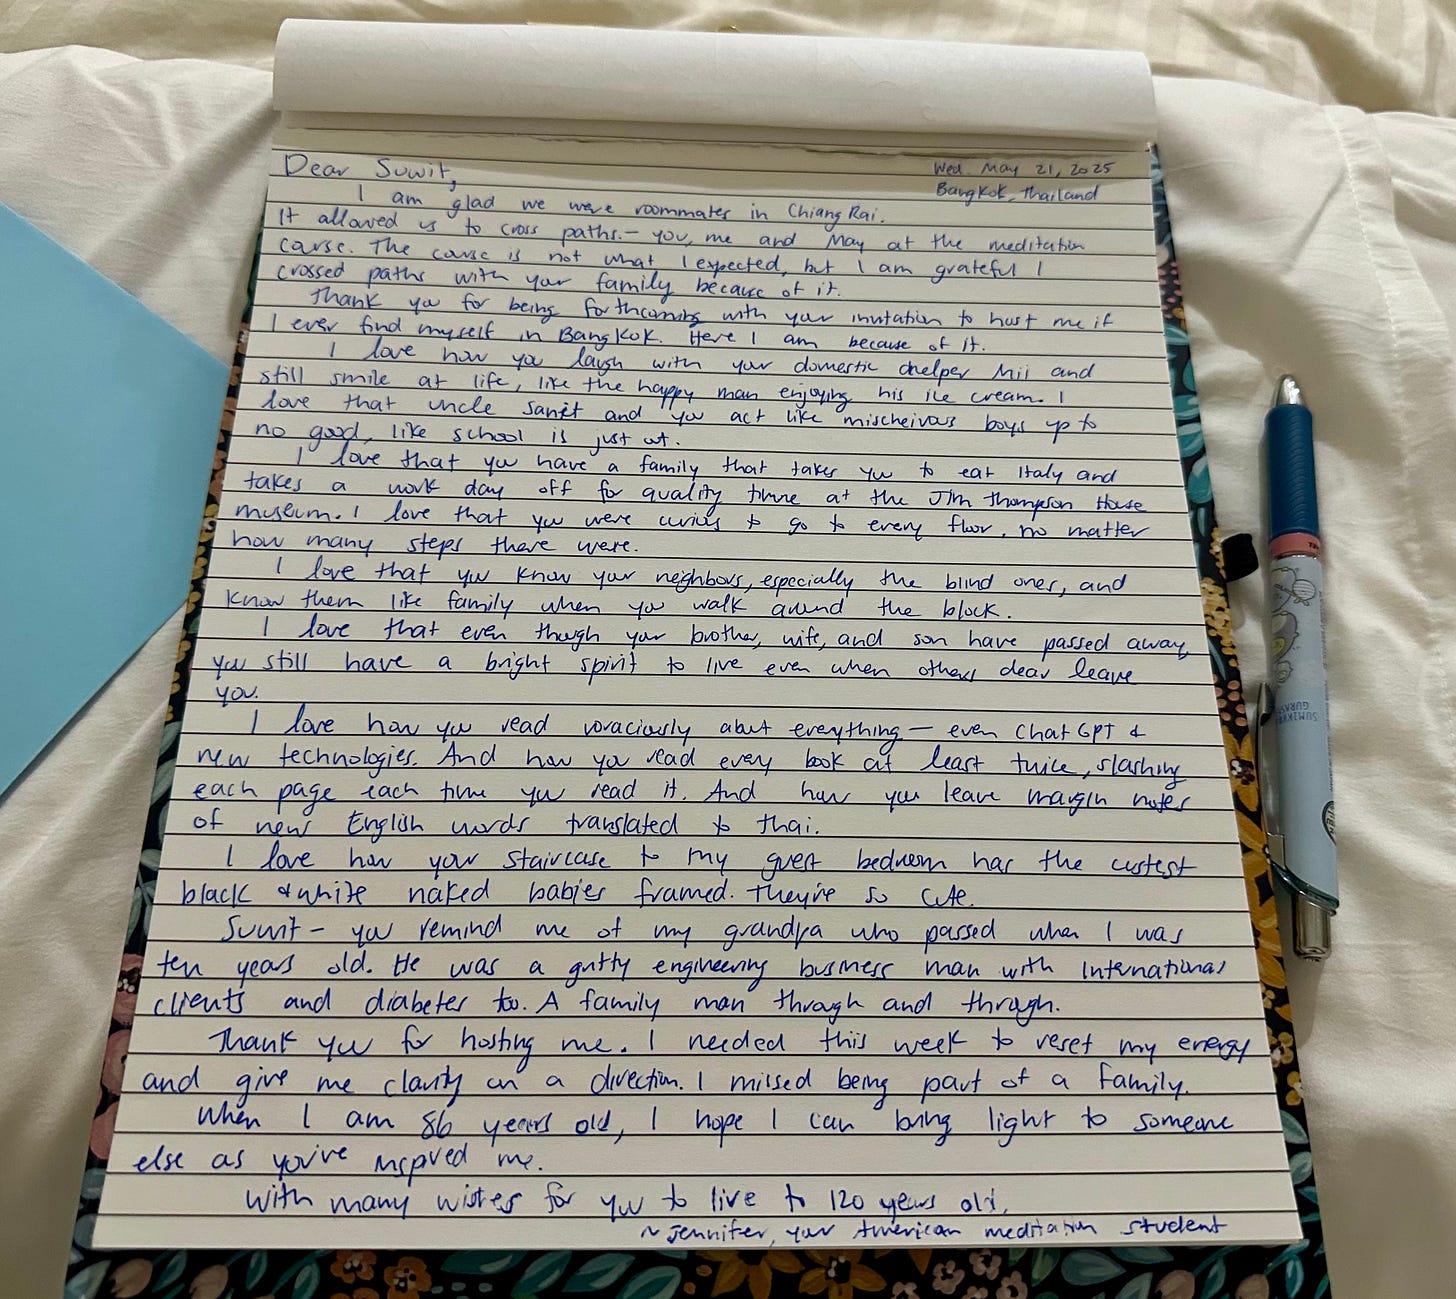 Dear Suwit,
Wed. May 21, 2025
Bangkok, Thailand
I am glad we were roommates in Chiang Rai.
It allowed us to cross paths. – you, me and May at the meditation
course. The course is not what I expected, but I am grateful I
crossed paths with your family because of it.
Thank you for being forthcoming with your invitation to host me if
I ever find myself in Bangkok. Here I am because of it.
I love how you laugh with your domestic helper Mii and
still smile at life, like the happy man enjoying his ice cream. I
love that uncle Sanit and you act like mischeivous boys up to
no good, like school is just out.
I love that you have a family that takes you to eat Italy and
takes a work day off for quality time at the Jim Thompson House
museum. I love that you were curious to go to every floor, no matter
how many steps there were.
I love that you know your neighbors, especially the blind ones, and
know them like family when you walk around the block.
I love that even though your brother, wife, and son have passed away,
you still have a bright spirit to live even when others dear leave
you.
I love how you read voraciously about everything – even Chat GPT &
new technologies. And how you read every book at least twice, slashing
each page each time you read it. And how you leave margin notes
of new English words translated to Thai.
I love how your staircase to my guest bedroom has the cutest
black & white naked babies framed. They're so cute.
Suwit – you remind me of my grandpa who passed when I was
ten years old. He was a gutty engineering business man with International
clients and diabetes too. A family man through and through.
Thank you for hosting me. I needed this week to reset my energy
and give me clarity on a direction. I missed being part of a family.
When I am 86 years old, I hope I can bring light to someone
else as you've inspired me.
With many wishes for you to live to 120 years old,
~ Jennifer, your American meditation student
SUMIKKO
GURASHI